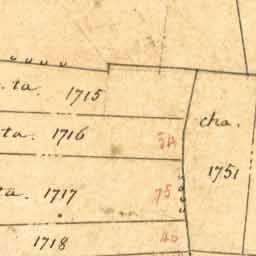 ta. 1715
cha.
ta. 1716 54
1751
ta. 1717 75
1718 40